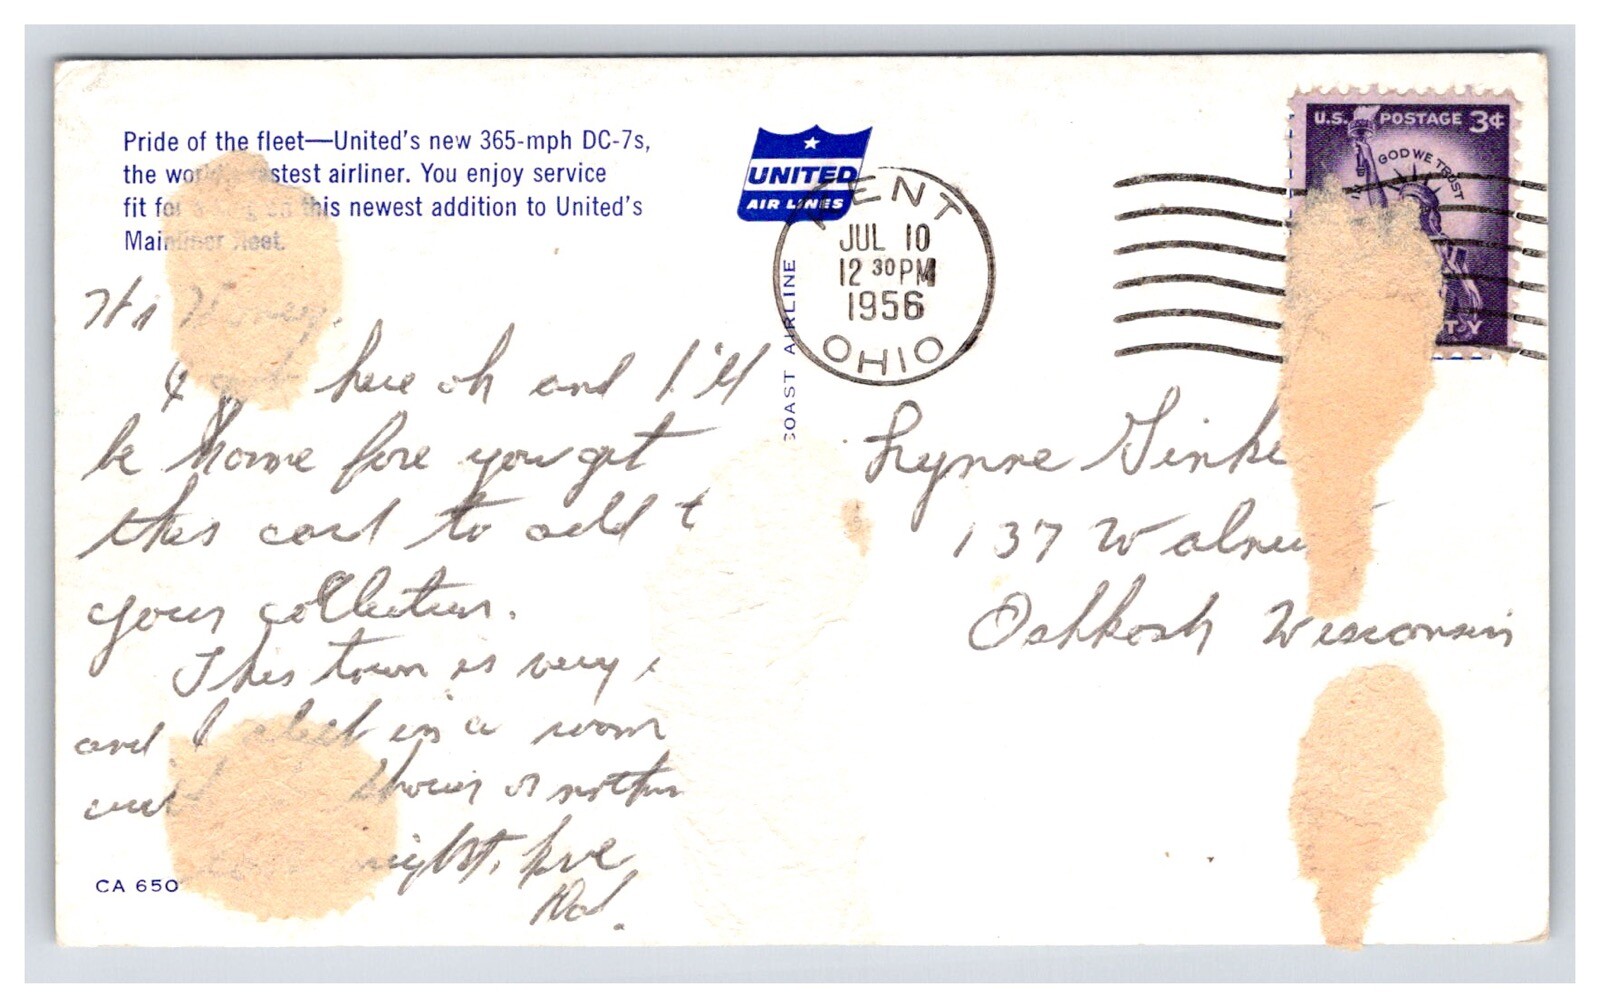 Pride of the fleet—United's new 365-mph DC-7s,
the world's fastest airliner. You enjoy service
fit for a king on this newest addition to United's
Mainliner fleet.
UNITED
AIR LINES
COAST AIRLINE
KENT
JUL 10
12 30 PM
1956
OHIO
U.S. POSTAGE 3¢
IN GOD WE TRUST
TY
Hi Honey,
I got here ok and I'll
be home fore you get
this card to add t
your collection.
This town is very
and I slept in a room
with shower or nothin
night. Love
Dad.
Lynne Ginke
137 Walnu
Oshkosh Wisconsin
CA 650